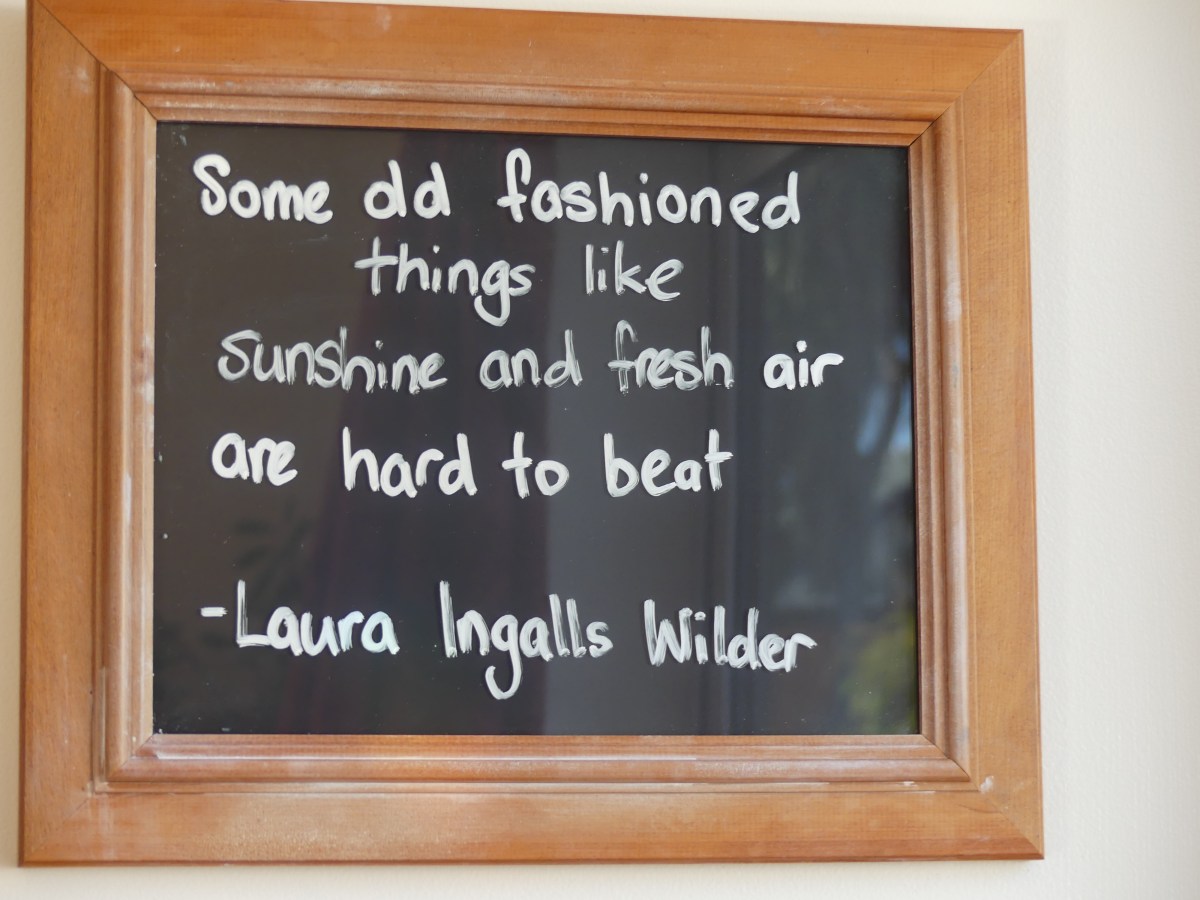 Some old fashioned
things like
sunshine and fresh air
are hard to beat
-Laura Ingalls Wilder